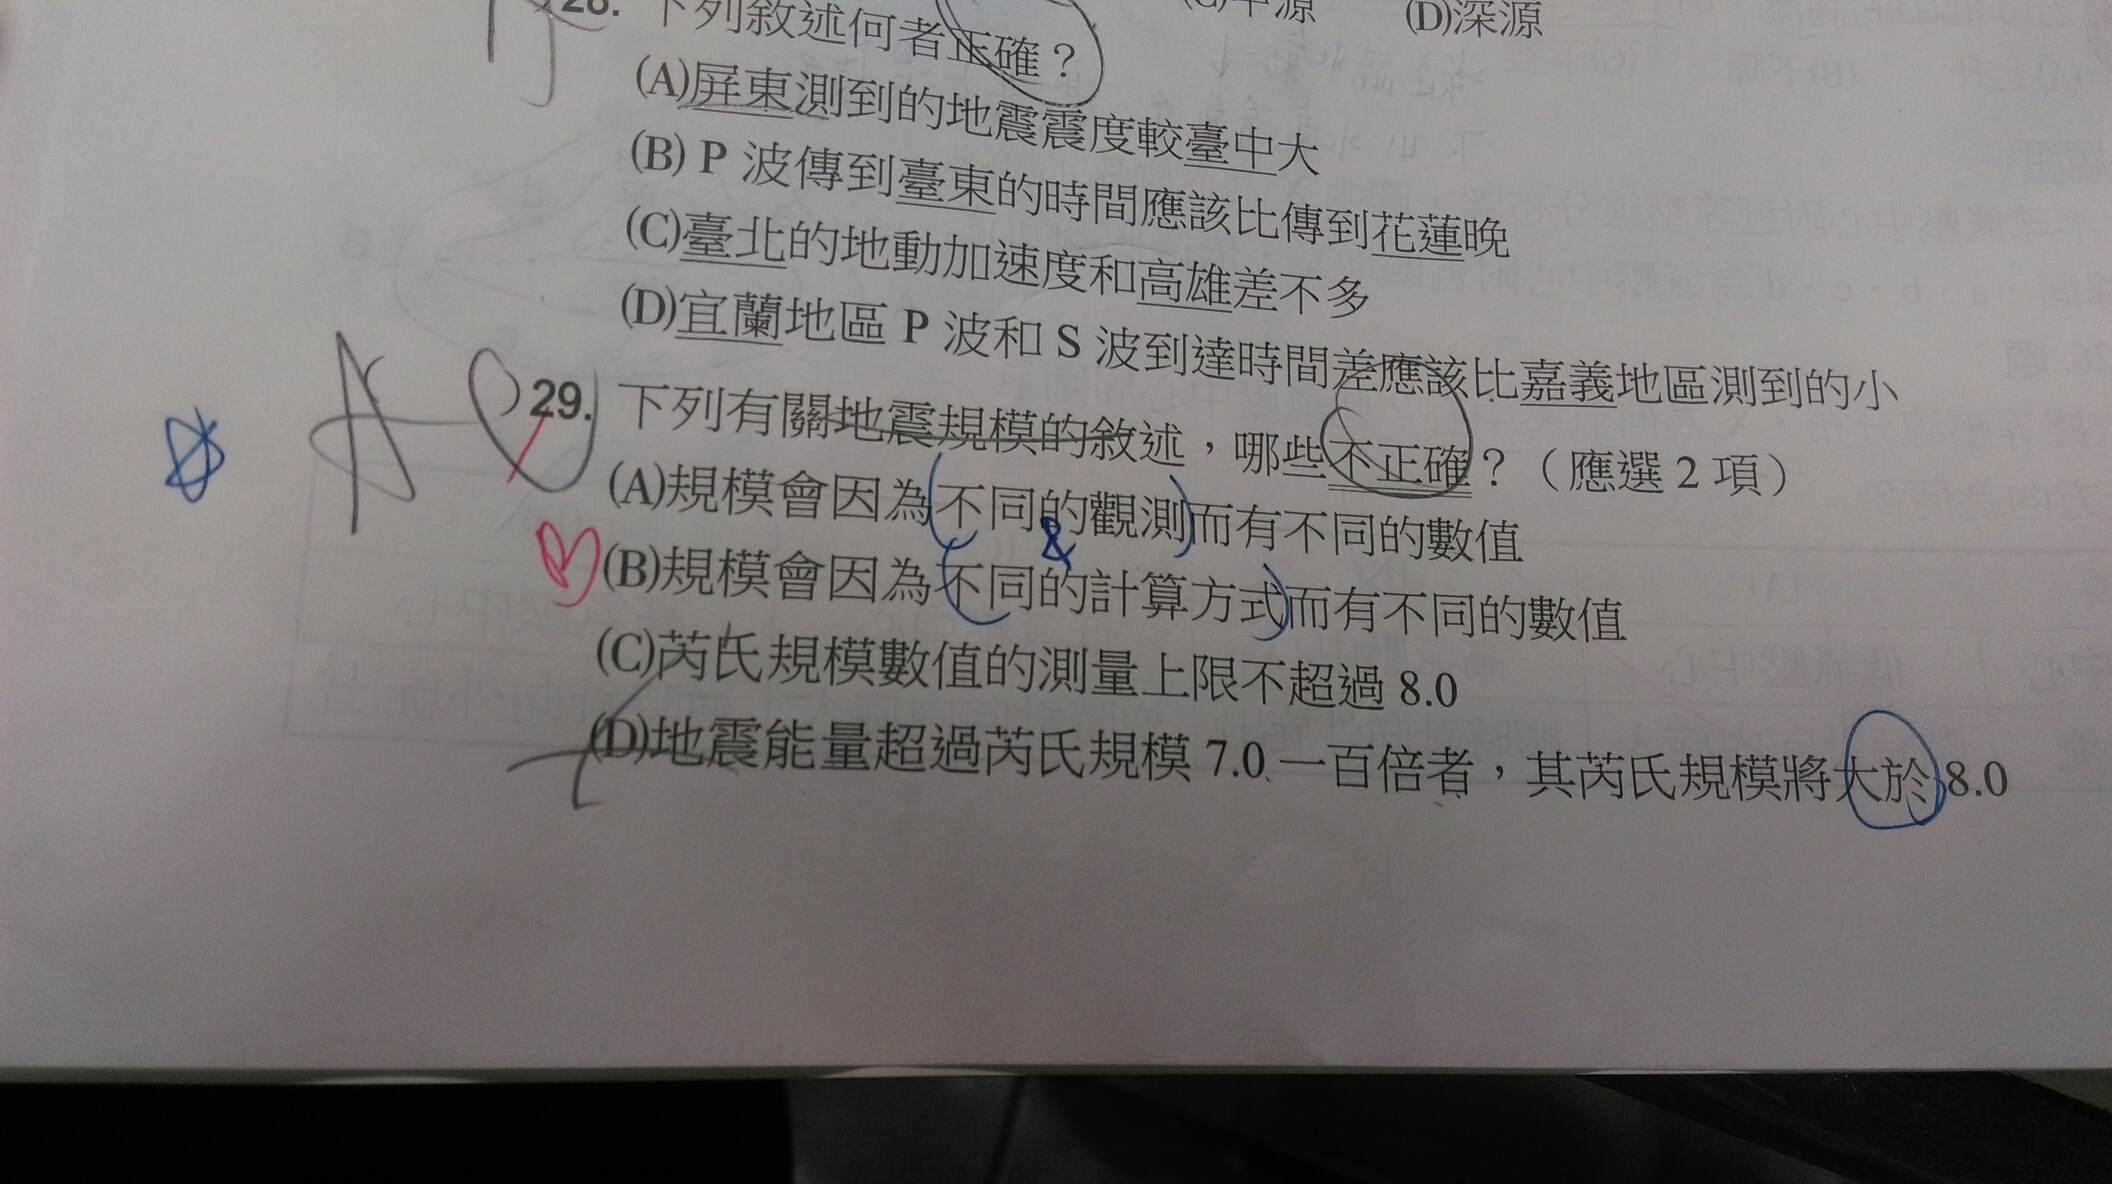 (C)中源 (D)深源
28. 下列敘述何者正確？
(A)屏東測到的地震震度較臺中大
(B) P 波傳到臺東的時間應該比傳到花蓮晚
(C)臺北的地動加速度和高雄差不多
(D)宜蘭地區 P 波和 S 波到達時間差應該比嘉義地區測到的小
)29. 下列有關地震規模的敘述，哪些不正確？（應選 2 項）
(A)規模會因為不同的觀測而有不同的數值
&
(B)規模會因為不同的計算方式而有不同的數值
(C)芮氏規模數值的測量上限不超過 8.0
(D)地震能量超過芮氏規模 7.0 一百倍者，其芮氏規模將大於 8.0